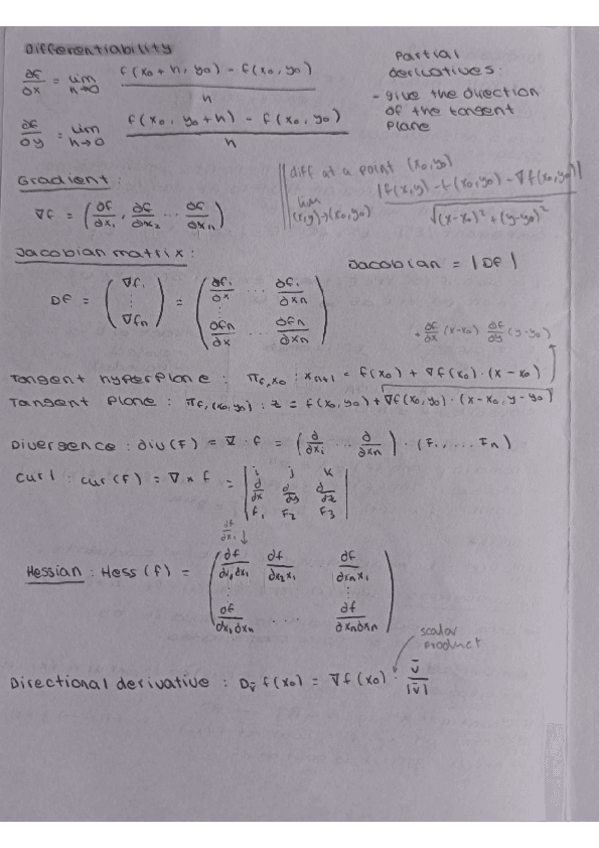 Differentiability
∂f/∂x = lim h→0 f(x₀+h, y₀) - f(x₀, y₀) / h
∂f/∂y = lim h→0 f(x₀, y₀+h) - f(x₀, y₀) / h
Partial
derivatives:
- give the direction
of the tangent
plane
Gradient:
∇f = (∂f/∂x₁, ∂f/∂x₂ ... ∂f/∂xₙ)
diff at a point (x₀,y₀)
lim (x,y)→(x₀,y₀) |f(x,y)-f(x₀,y₀)-∇f(x₀,y₀)| / √(x-x₀)²+(y-y₀)²
Jacobian matrix:
Jacobian = |Df|
Df = (∇f₁ ⋮ ∇fₙ) = (∂f₁/∂x ... ∂f₁/∂xₙ ⋮ ∂fₙ/∂x ... ∂fₙ/∂xₙ)
+ ∂f/∂x (x-x₀) ∂f/∂y (y-y₀)
Tangent hyperplane: π f,x₀ : xₙ₊₁ = f(x₀) + ∇f(x₀)·(x-x₀)
Tangent plane: π f,(x₀,y₀) : z = f(x₀,y₀)+∇f(x₀,y₀)·(x-x₀, y-y₀)
Divergence: div(F) = ∇·f = (∂/∂x₁ ... ∂/∂xₙ)·(F₁,...Fₙ)
Curl: cur(f) = ∇×f = | i j k
∂/∂x ∂/∂y ∂/∂z
f₁ F₂ F₃ |
∂f/∂x₁ ↓
Hessian: Hess(f) = (∂f/∂x₁∂x₁ ∂f/∂x₂x₁ ... ∂f/∂xₙx₁
⋮ ⋮
∂f/∂x₁∂xₙ ... ∂f/∂xₙ∂xₙ)
scalar
product
Directional derivative: D_v̄ f(x₀) = ∇f(x₀)· v̄/|v̄|